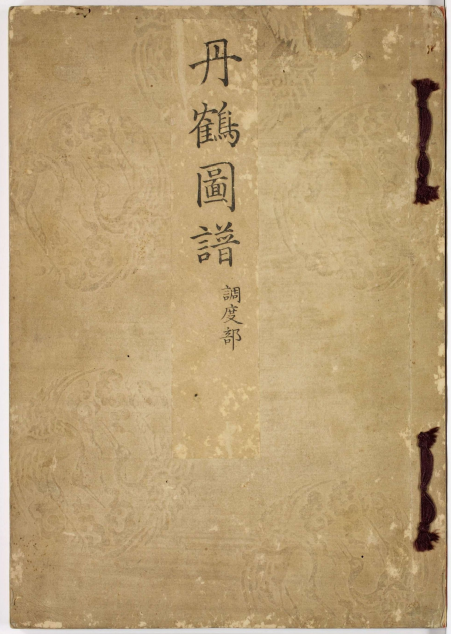 丹鶴圖譜
調度部